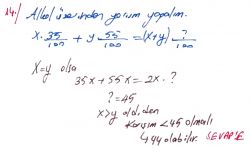 14./ Alkol üzerinden yorum yapalım.
x. 35/100 + y 55/100 = (x+y) ?/100
x=y olsa
35x + 55x = 2x. ?
? = 45
x>y old.den
karışım < 45 olmalı
↳ 44 olabilir. CEVAP E